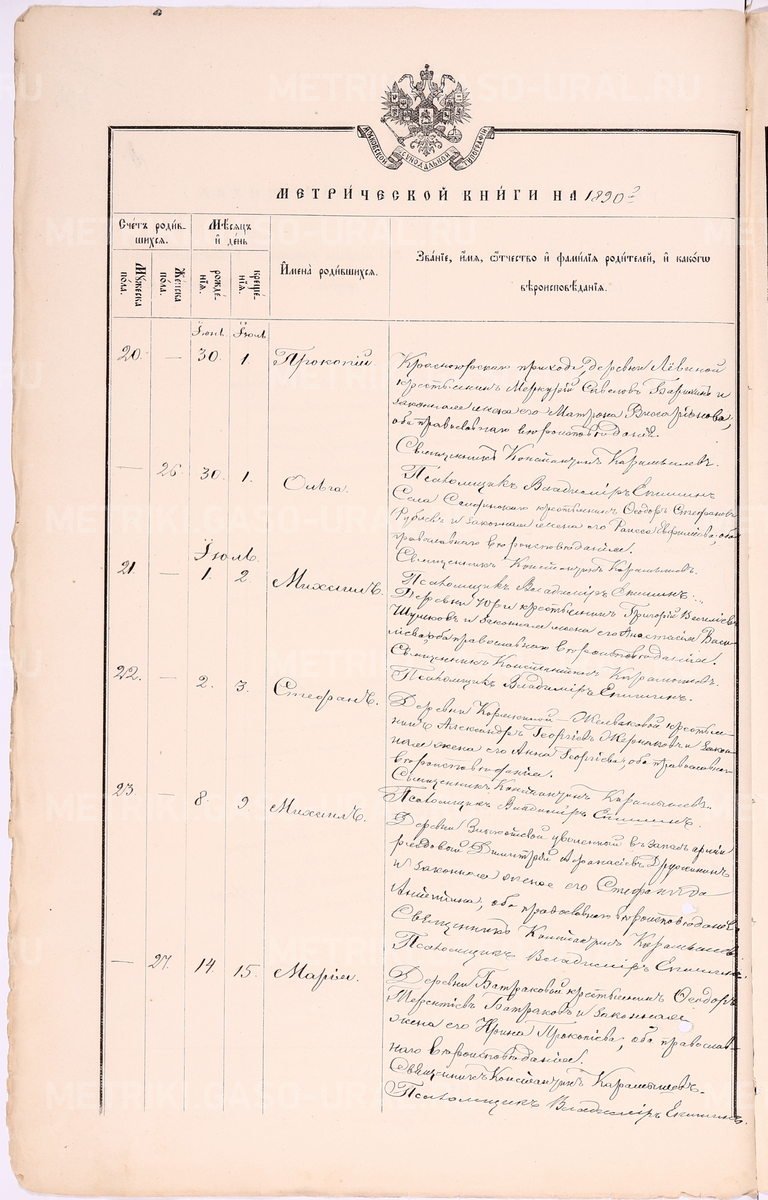 МОСКОВСКОЙ СѴНОДАЛЬНОЙ ТИПОГРАФІИ
МЕТРИ́ЧЕСКОЙ КНИ́ГИ НА 1890 г.
Сче́тъ роди́вшихся.
Мꙋ́жеска по́ла.
Же́нска по́ла.
Мѣ́сяцъ и҆ де́нь
рожде́нїѧ.
креще́нїѧ.
И҆мена̀ роди́вшихсѧ.
Зва́нїе, и҆́мѧ, ѻ҆́тчество и҆ фами́лїѧ роди́телей, и҆ како́гѡ
вѣроисповѣ́данїѧ.
Іюнь Іюль
20. — 30. 1. Прокопій
Красноярскаго прихода, деревни
крестьянинъ Меркурій и
законная жена его Матрона
оба православнаго вѣроисповѣданія.
Священникъ Константинъ Карамышевъ.
Псаломщикъ Владиміръ Епишинъ
— 26. 30. 1. Ольга.
Села крестьянинъ Ѳеодоръ Стефановъ
и законная жена его Раиса оба
православнаго вѣроисповѣданія.
Священникъ Константинъ Карамышевъ.
Псаломщикъ Владиміръ Епишинъ.
Іюль.
21. — 1. 2. Михаилъ.
Деревни крестьянинъ Григорій
и законная жена его Анастасія Васи-
льева, оба православнаго вѣроисповѣданія.
Священникъ Константинъ Карамышевъ.
Псаломщикъ Владиміръ Епишинъ.
22. — 2. 3. Стефанъ.
Деревни крестья-
нинъ Александръ Георгіевъ и закон-
ная жена его Анна Георгіева, оба православнаго
вѣроисповѣданія.
Священникъ Константинъ Карамышевъ.
Псаломщикъ Владиміръ Епишинъ.
23. — 8. 9. Михаилъ.
Деревни уволенной въ запасъ арміи
рядовой Димитрій Аѳанасіевъ Дружининъ
и законная жена его Стефанида
оба православнаго вѣроисповѣданія.
Священникъ Константинъ Карамышевъ
Псаломщикъ Владиміръ Епишинъ.
— 27. 14. 15. Марія.
Деревни Батраковой крестьянинъ Ѳеодоръ
Терентіевъ Батраковъ и законная
жена его Ирина Прокопіева, оба православ-
наго вѣроисповѣданія.
Священникъ Константинъ Карамышевъ.
Псаломщикъ Владиміръ Епишинъ.